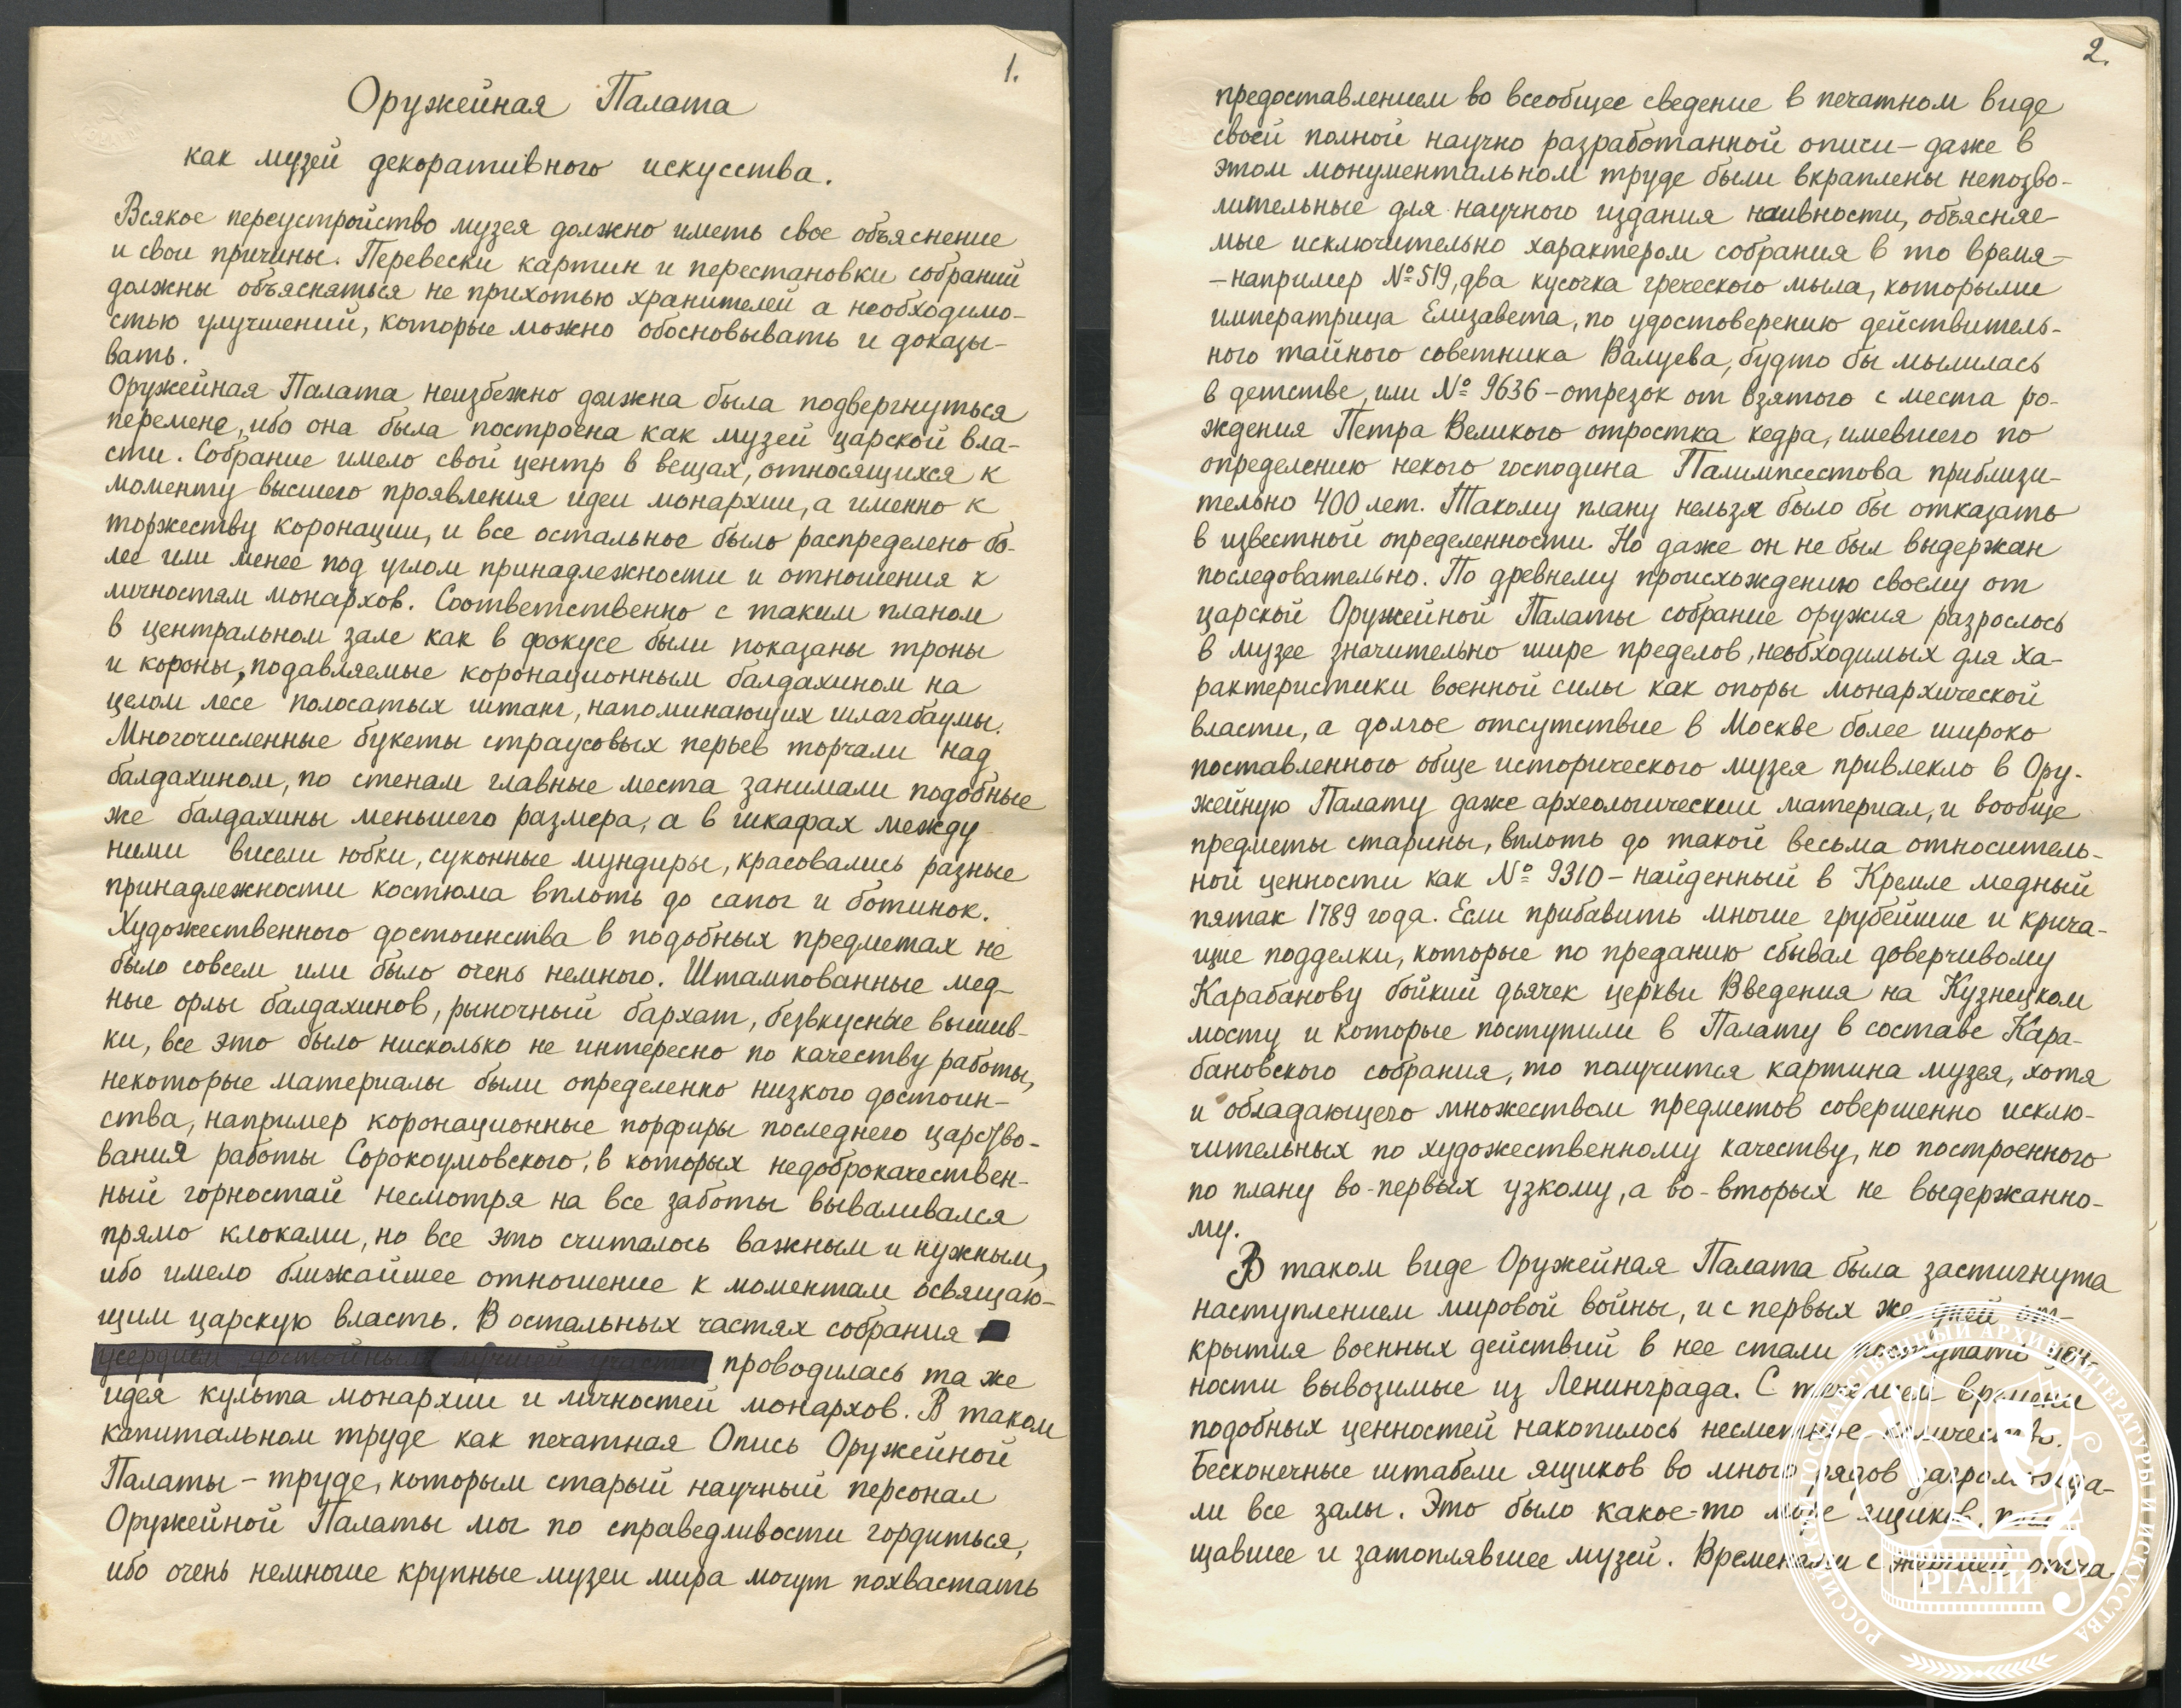 1.
Оружейная Палата
как музей декоративного искусства.
Всякое переустройство музея должно иметь свое объяснение
и свои причины. Перевески картин и перестановки собраний
должны объясняться не прихотью хранителей а необходимо-
стью улучшений, которые можно обосновывать и доказы-
вать.
Оружейная Палата неизбежно должна была подвергнуться
перемене, ибо она была построена как музей царской вла-
сти. Собрание имело свой центр в вещах, относящихся к
моменту высшего проявления идеи монархии, а именно к
торжеству коронации, и все остальное было распределено бо-
лее или менее под углом принадлежности и отношения к
личностям монархов. Соответственно с таким планом
в центральном зале как в фокусе были показаны троны
и короны, подавляемые коронационным балдахином на
целом лесе полосатых штанг, напоминающих шлагбаумы.
Многочисленные букеты страусовых перьев торчали над
балдахином, по стенам главные места занимали подобные
же балдахины меньшего размера, а в шкафах между
ними висели юбки, суконные мундиры, красовались разные
принадлежности костюма вплоть до сапог и ботинок.
Художественного достоинства в подобных предметах не
было совсем или было очень немного. Штампованные мед-
ные орлы балдахинов, рыночный бархат, безвкусные вышив-
ки, все это было нисколько не интересно по качеству работы,
некоторые материалы были определенно низкого достоин-
ства, например коронационные порфиры последнего царство-
вания работы Сорокоумовского, в которых недоброкачествен-
ный горностай несмотря на все заботы вываливался
прямо клоками, но все это считалось важным и нужным,
ибо имело ближайшее отношение к моментам освящаю-
щим царскую власть. В остальных частях собрания
усердием достойным лучшей участи проводилась та же
идея культа монархии и личностей монархов. В таком
капитальном труде как печатная Опись Оружейной
Палаты – труде, которым старый научный персонал
Оружейной Палаты мог по справедливости гордиться,
ибо очень немногие крупные музеи мира могут похвастать
2.
предоставлением во всеобщее сведение в печатном виде
своей полной научно разработанной описи – даже в
этом монументальном труде были вкраплены непозво-
лительные для научного издания наивности, объясняе-
мые исключительно характером собрания в то время –
– например № 519, два кусочка греческого мыла, которыми
императрица Елизавета, по удостоверению действитель-
ного тайного советника Валуева, будто бы мылилась
в детстве, или № 9636 – отрезок от взятого с места ро-
ждения Петра Великого отростка кедра, имевшего по
определению некого господина Палимпсестова приблизи-
тельно 400 лет. Такому плану нельзя было бы отказать
в известной определенности. Но даже он не был выдержан
последовательно. По древнему происхождению своему от
царской Оружейной Палаты собрание оружия разрослось
в музее значительно шире пределов, необходимых для ха-
рактеристики военной силы как опоры монархической
власти, а долгое отсутствие в Москве более широко
поставленного обще исторического музея привлекло в Ору-
жейную Палату даже археологический материал, и вообще
предметы старины, вплоть до такой весьма относитель-
ной ценности как № 9310 – найденный в Кремле медный
пятак 1789 года. Если прибавить многие грубейшие и крича-
щие подделки, которые по преданию сбывал доверчивому
Карабанову бойкий дьячек церкви Введения на Кузнецком
мосту и которые поступили в Палату в составе Кара-
бановского собрания, то получится картина музея, хотя
и обладающего множеством предметов совершенно исклю-
чительных по художественному качеству, но построенного
по плану во-первых узкому, а во-вторых не выдержанно-
му.
В таком виде Оружейная Палата была застигнута
наступлением мировой войны, и с первых же дней от-
крытия военных действий в нее стали поступать цен-
ности вывозимые из Ленинграда. С течением времени
подобных ценностей накопилось несметное количество.
Бесконечные штабели ящиков во много рядов загроможда-
ли все залы. Это было какое-то море ящиков, погло-
щавшее и затоплявшее музей. Временами с отча-
РОССИЙСКИЙ ГОСУДАРСТВЕННЫЙ АРХИВ ЛИТЕРАТУРЫ И ИСКУССТВА
РГАЛИ